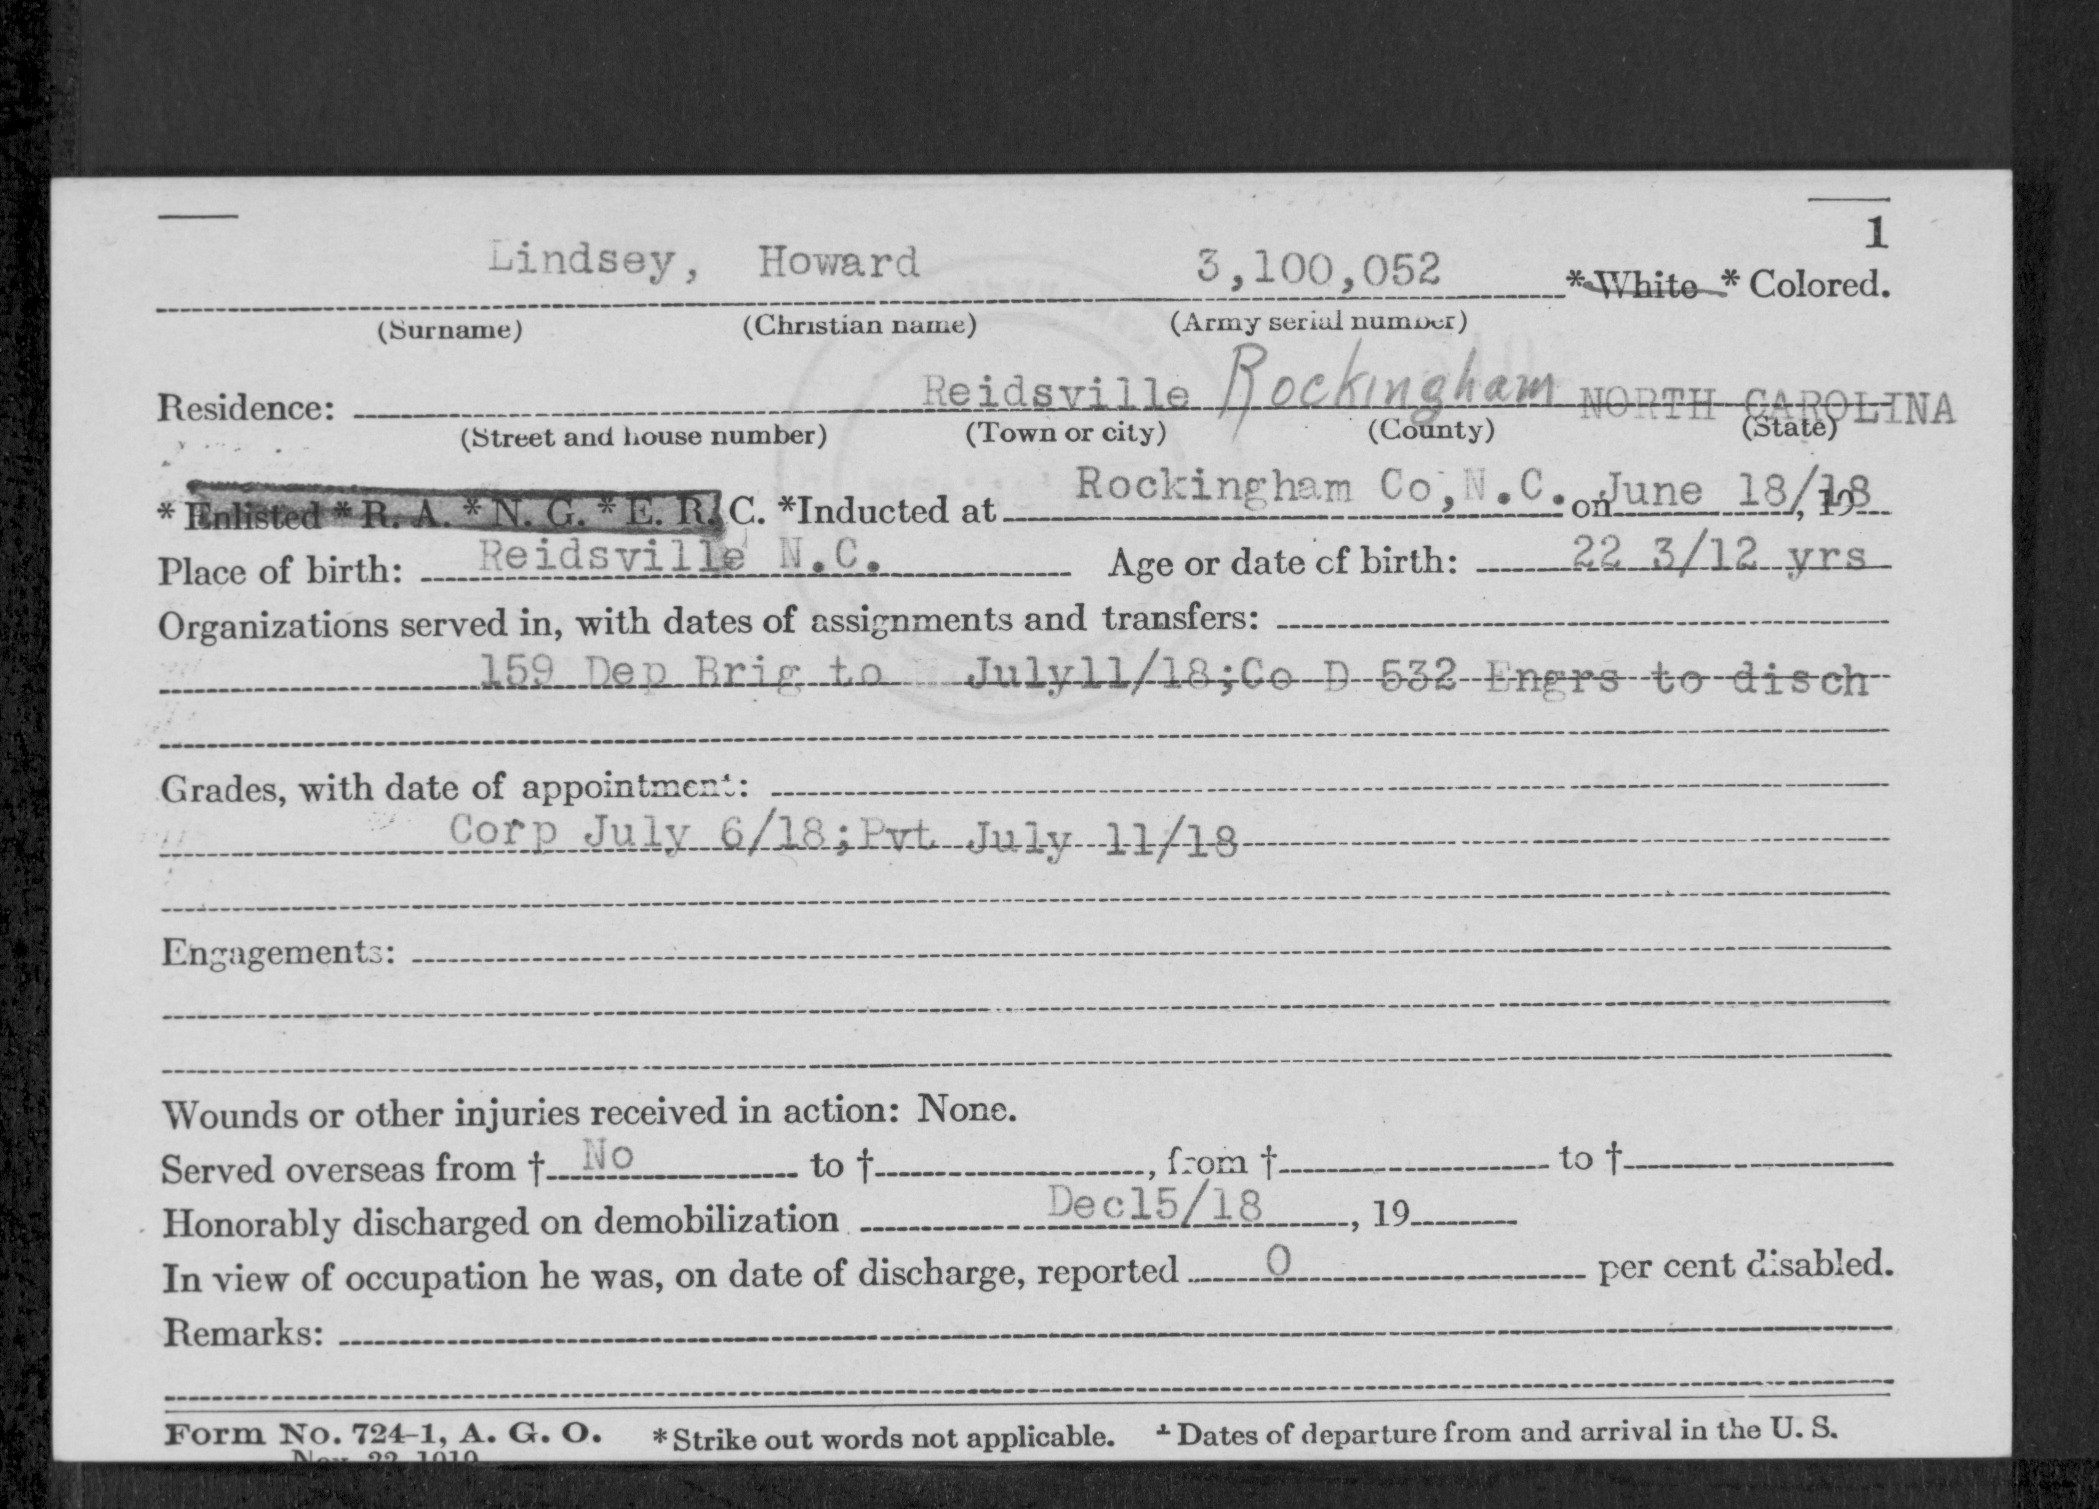 1
Lindsey, Howard 3,100,052 *White * Colored.
(Surname) (Christian name) (Army serial number)
Residence: Reidsville Rockingham NORTH CAROLINA
(Street and house number) (Town or city) (County) (State)
* Enlisted * R. A. * N. G. * E. R. C. *Inducted at Rockingham Co, N.C. on June 18/18, 19
Place of birth: Reidsville N.C. Age or date of birth: 22 3/12 yrs
Organizations served in, with dates of assignments and transfers:
159 Dep Brig to July11/18;Co D 532 Engrs to disch
Grades, with date of appointment:
Corp July 6/18;Pvt July 11/18
Engagements:
Wounds or other injuries received in action: None.
Served overseas from † No to †, from † to †
Honorably discharged on demobilization Dec15/18, 19
In view of occupation he was, on date of discharge, reported 0 per cent disabled.
Remarks:
Form No. 724-1, A. G. O. *Strike out words not applicable. † Dates of departure from and arrival in the U. S.
Nov. 22, 1919